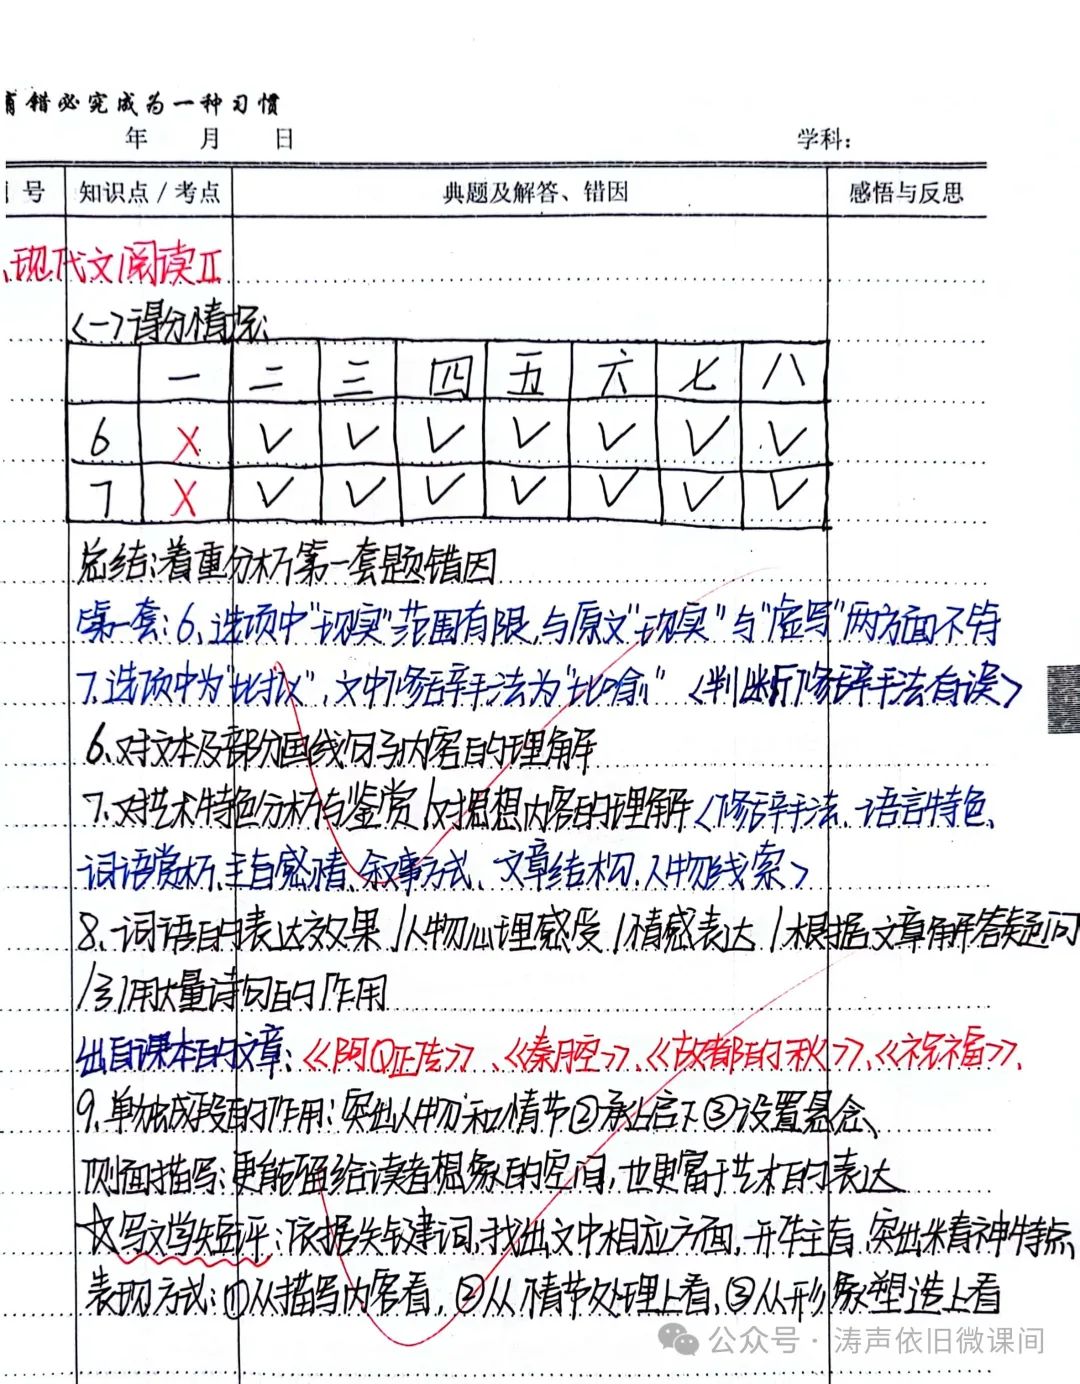 有错必究成为一种习惯
年 月 日 学科:
号 知识点/考点 典题及解答、错因 感悟与反思
、现代文阅读Ⅱ
<一>得分情况:
一 二 三 四 五 六 七 八
6 X ✓ ✓ ✓ ✓ ✓ ✓ ✓
7 X ✓ ✓ ✓ ✓ ✓ ✓ ✓
总结:着重分析第一套题错因
第一套:6、选项中"现实"范围有限,与原文"现实"与"虚写"两方面不符
7.选项中为"比拟",文中修辞手法为"比喻" <判断修辞手法有误>
6、对文本及部分画线句子内容的理解
7、对艺术特色分析与鉴赏/对思想内容的理解<修辞手法、语言特色、
词语赏析、主旨感情、叙事方式、文章结构、人物线索>
8、词语的表达效果/人物心理感受/情感表达/根据文章解答疑问
/引用大量诗句的作用
出自课本的文章:《阿Q正传》、《秦腔》、《故都的秋》、《祝福》、
9、单独成段的作用:突出人物和情节②承上启下③设置悬念、
侧面描写:更能留给读者想象的空间,也更富于艺术的表达
☆写文学短评:依据关键词,找出文中相应方面,并写主旨,突出精神特点、
表现方式:①从描写内容看,②从情节处理上看,③从形象塑造上看
公众号·涛声依旧微课间